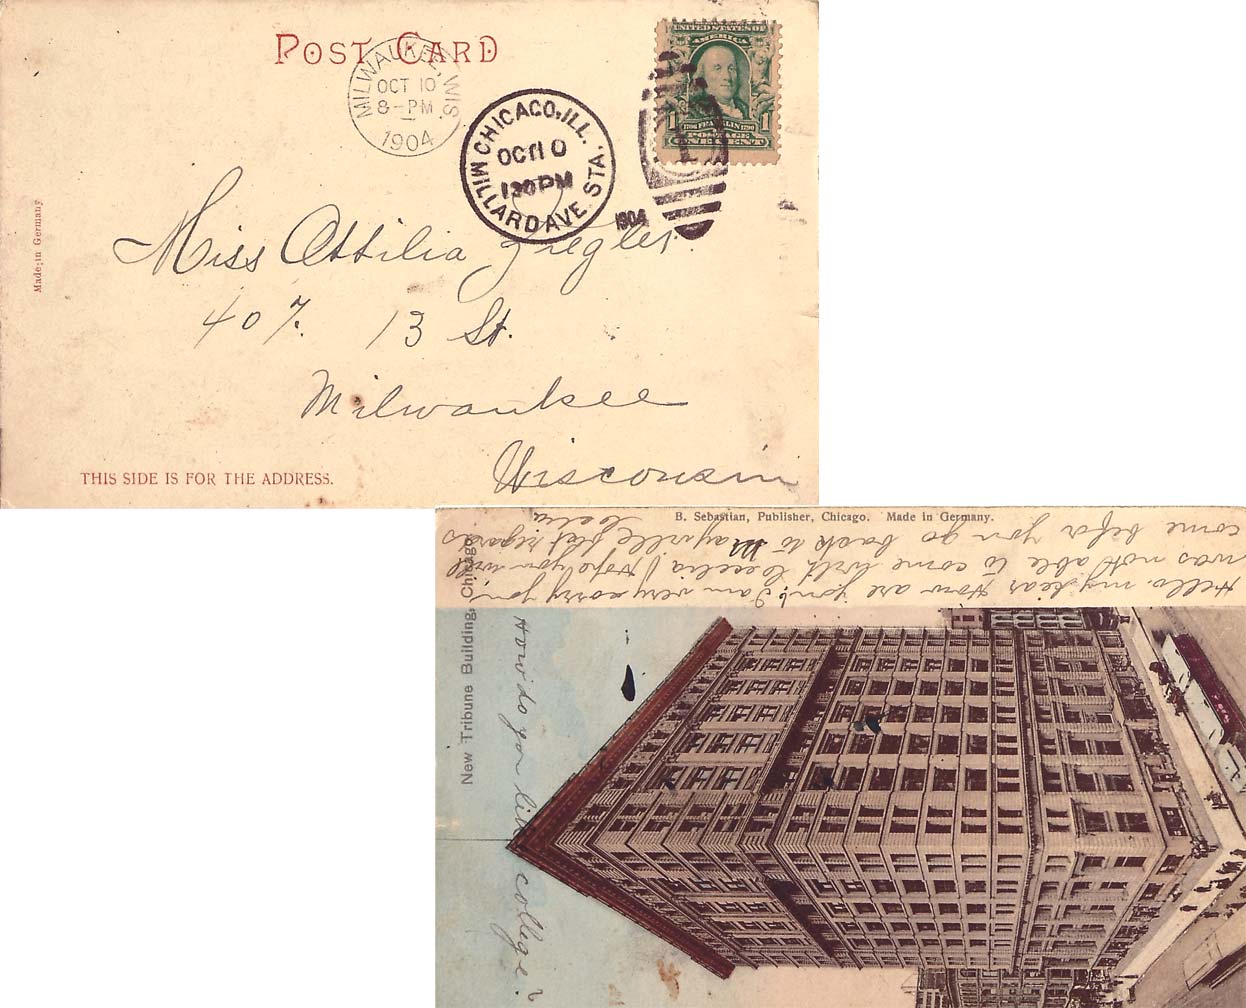 POST CARD
MILWAUKEE, WIS.
OCT 10
8-PM
1904
CHICAGO, ILL.
OCT 10
1 30 PM
MILLARD AVE. STA.
1904
UNITED STATES OF
AMERICA
1706 FRANKLIN 1790
1 POSTAGE 1
ONE CENT
Made in Germany
Miss Ottilia Ziegler.
407. 13 St.
Milwaukee
Wisconsin
THIS SIDE IS FOR THE ADDRESS.
B. Sebastian, Publisher, Chicago. Made in Germany.
Hello my dear How are you? I am very sorry you
was not able to come with Cecelia I hope you will
come befor you go back to Mayville flat regards
New Tribune Building, Chicago.
How do you like college?